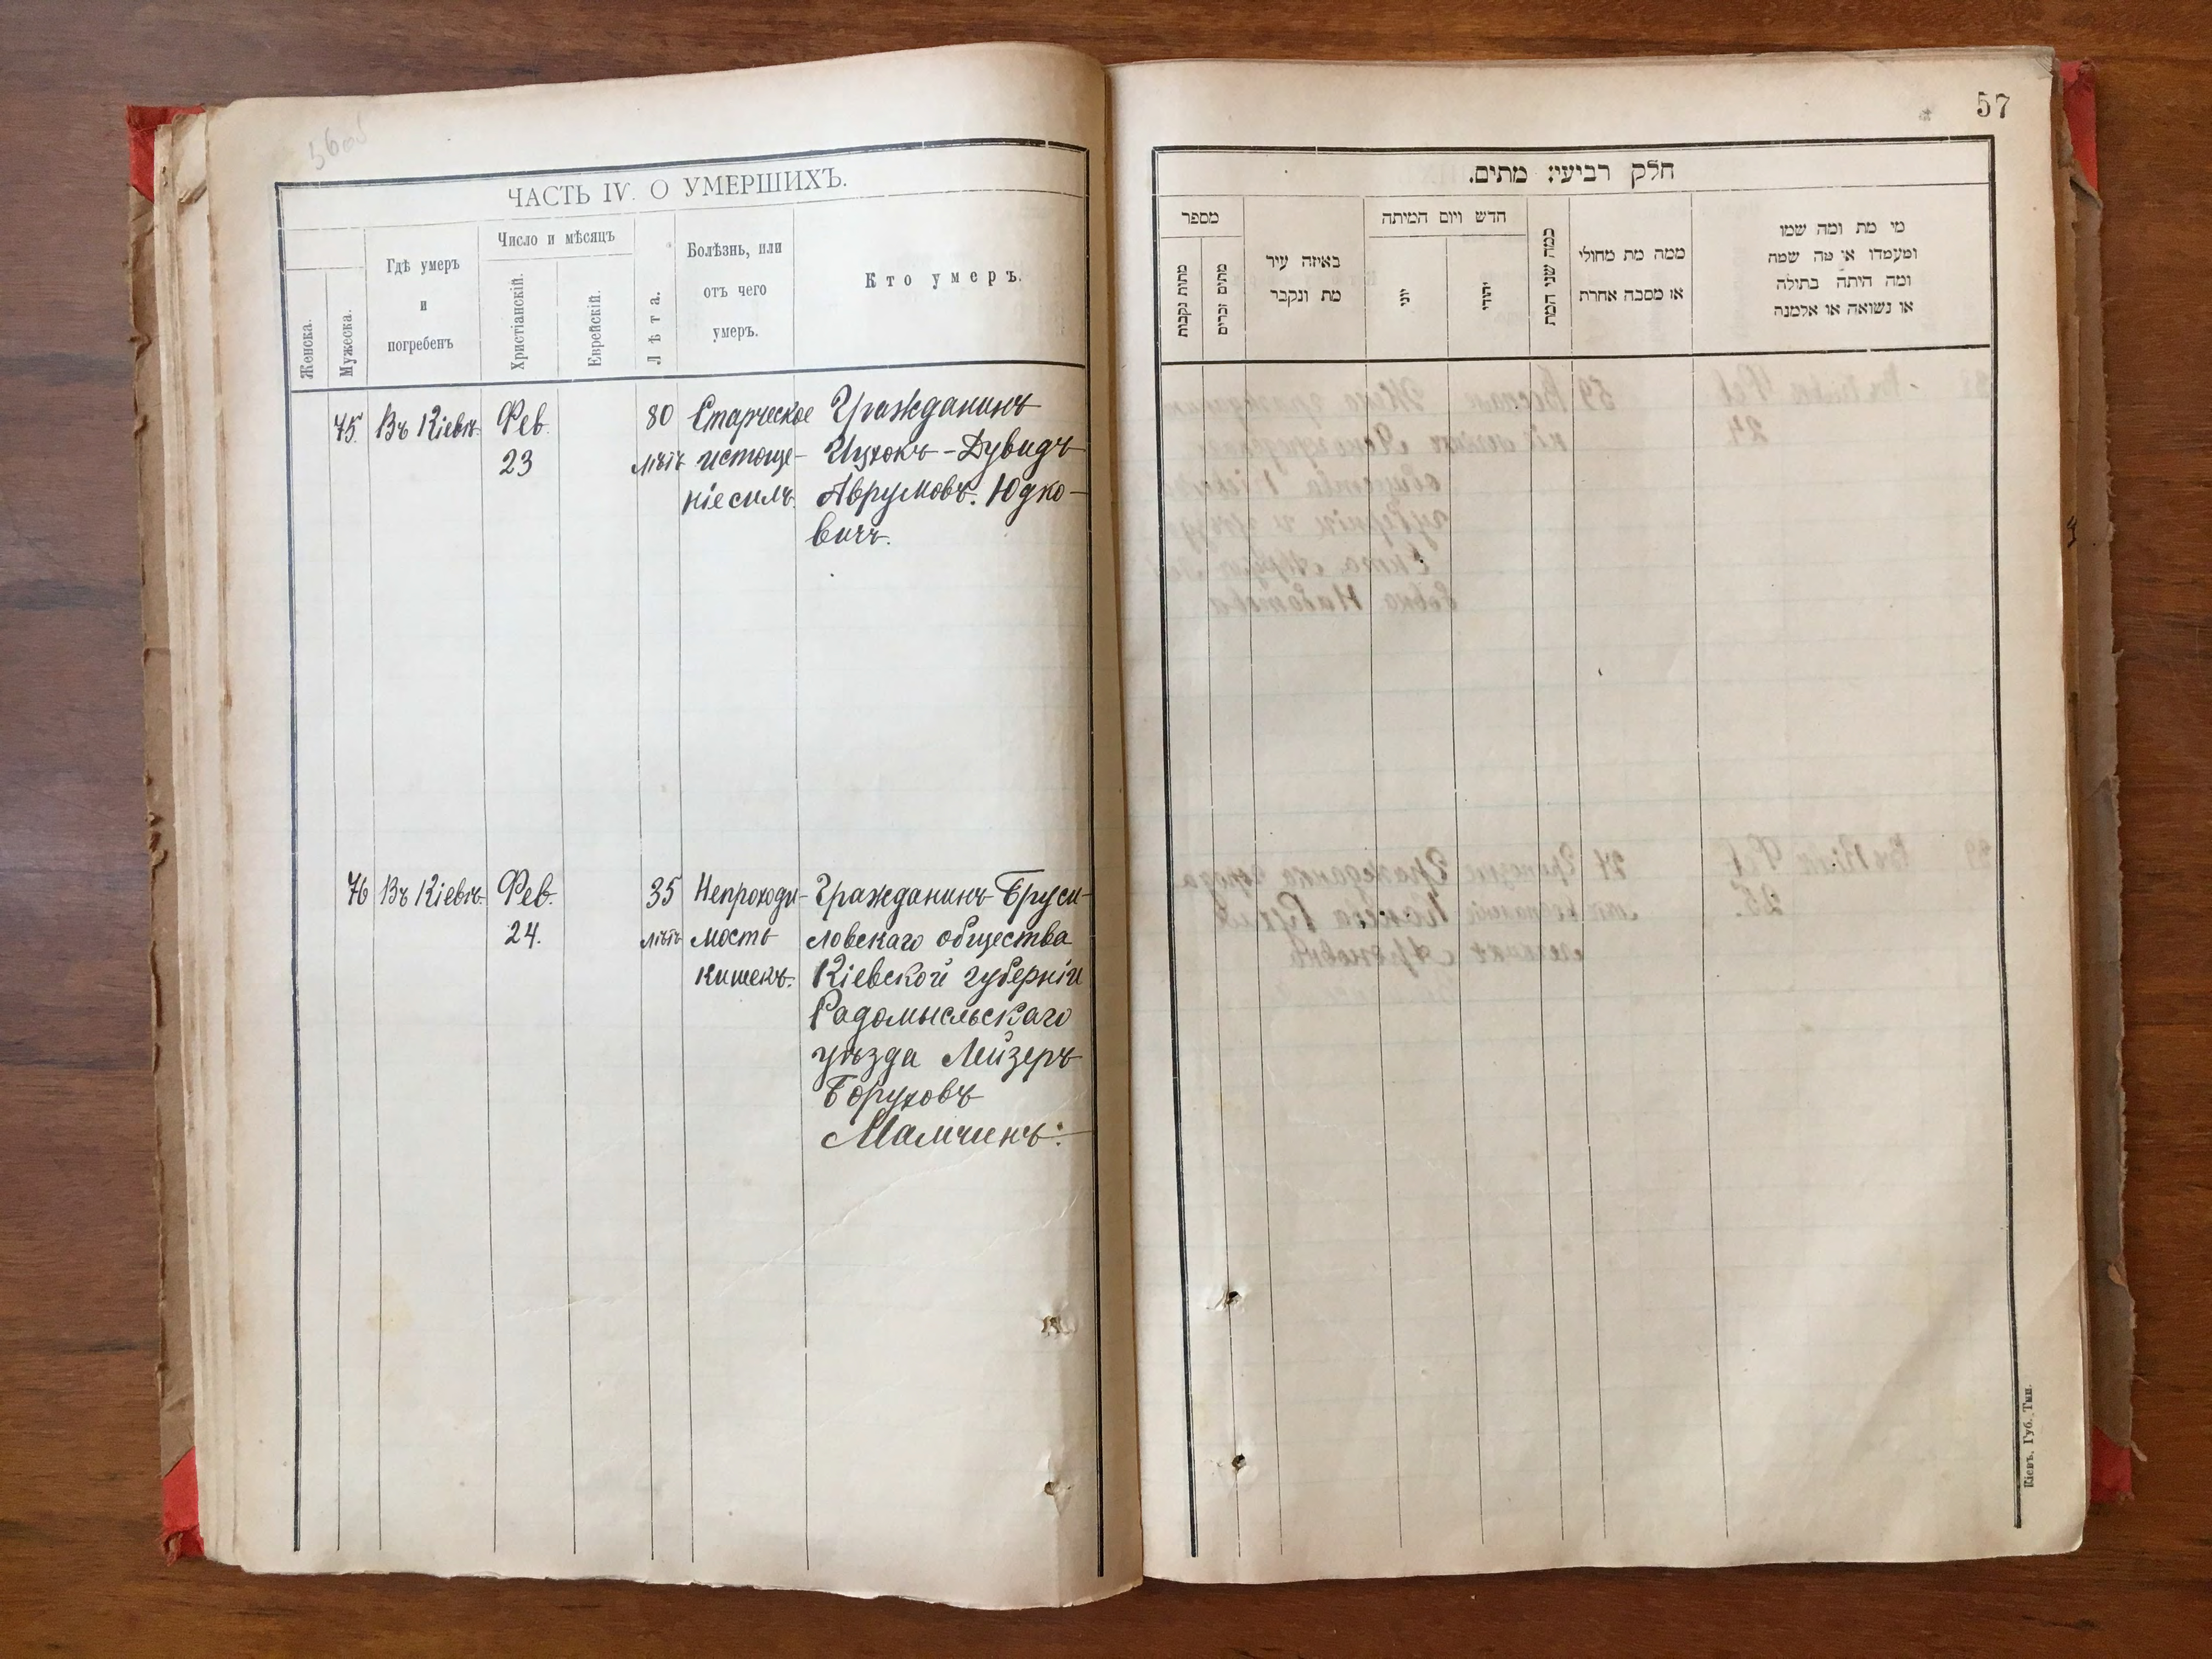 ЧАСТЬ IV. О УМЕРШИХЪ.
Женска.
Мужеска.
Гдѣ умеръ
и
погребенъ
Число и мѣсяцъ
Христіанскій.
Еврейскій.
Лѣта.
Болѣзнь, или
отъ чего
умеръ.
Кто умеръ.
75. Въ Кіевѣ Фев. 80 Старческое Гражданинъ
23 лѣтъ истоще- Ицхокъ-Дувидъ
ніе силъ. Аврумовъ. Юдко-
вичъ.
76 Въ Кіевѣ Фев. 35 Непроходи- Гражданинъ Бруси-
24. лѣтъ мость ловскаго общества
кишекъ. Кіевской губерніи
Радомысльскаго
уѣзда Лейзеръ
Боруховъ
Мамчинъ:
57
חלק רביעי: מתים.
מספר
מתות נקבות
מתים זכרים
באיזה עיר
מת ונקבר
חדש ויום המיתה
יוני
יהודי
כמה שני המת
ממה מת מחולי
או מסבה אחרת
מי מת ומה שמו
ומעמדו או מה שמה
ומה היתה בתילה
או נשואה או אלמנה
Кіевъ, Губ. Тип.